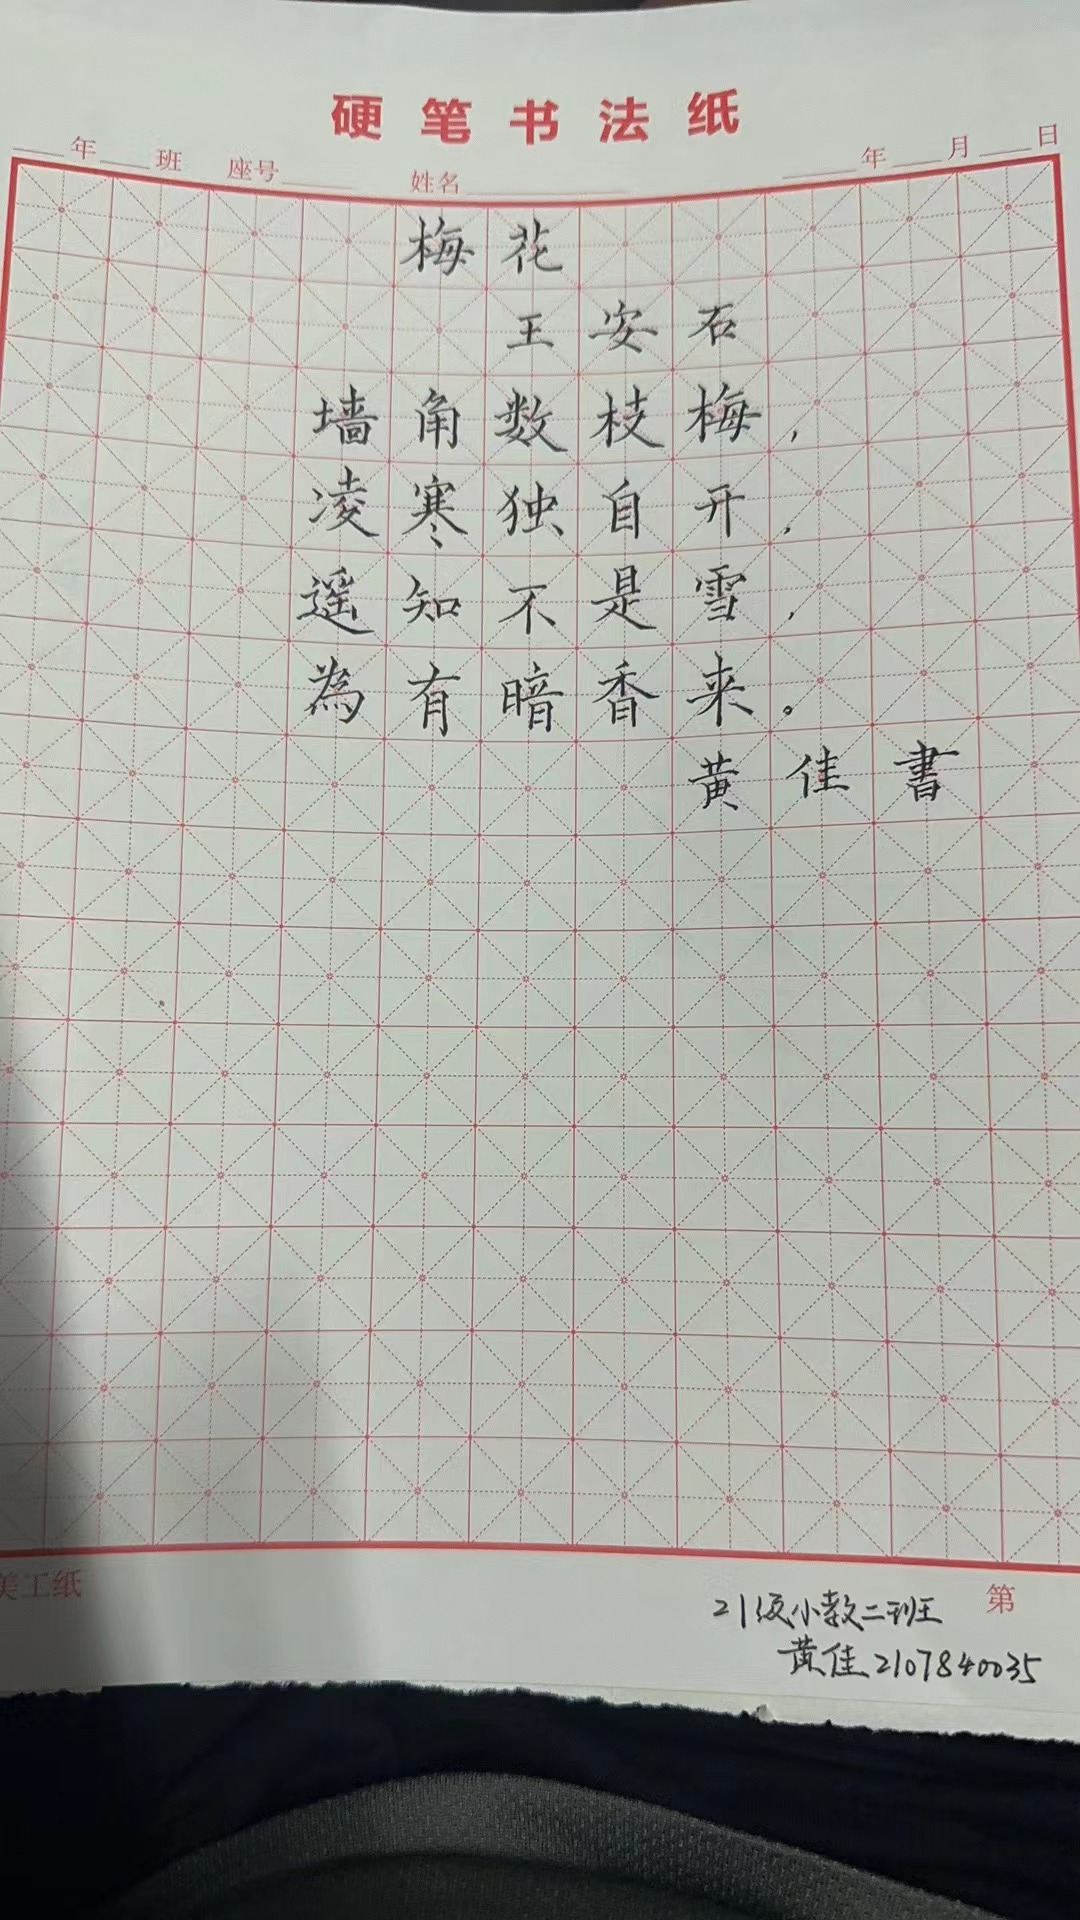 硬笔书法纸
年 班 座号 姓名 年 月 日
梅花
王安石
墙角数枝梅，
凌寒独自开，
遥知不是雪，
為有暗香来。
黄佳書
美工纸 第
21级小教二班
黄佳2107840035